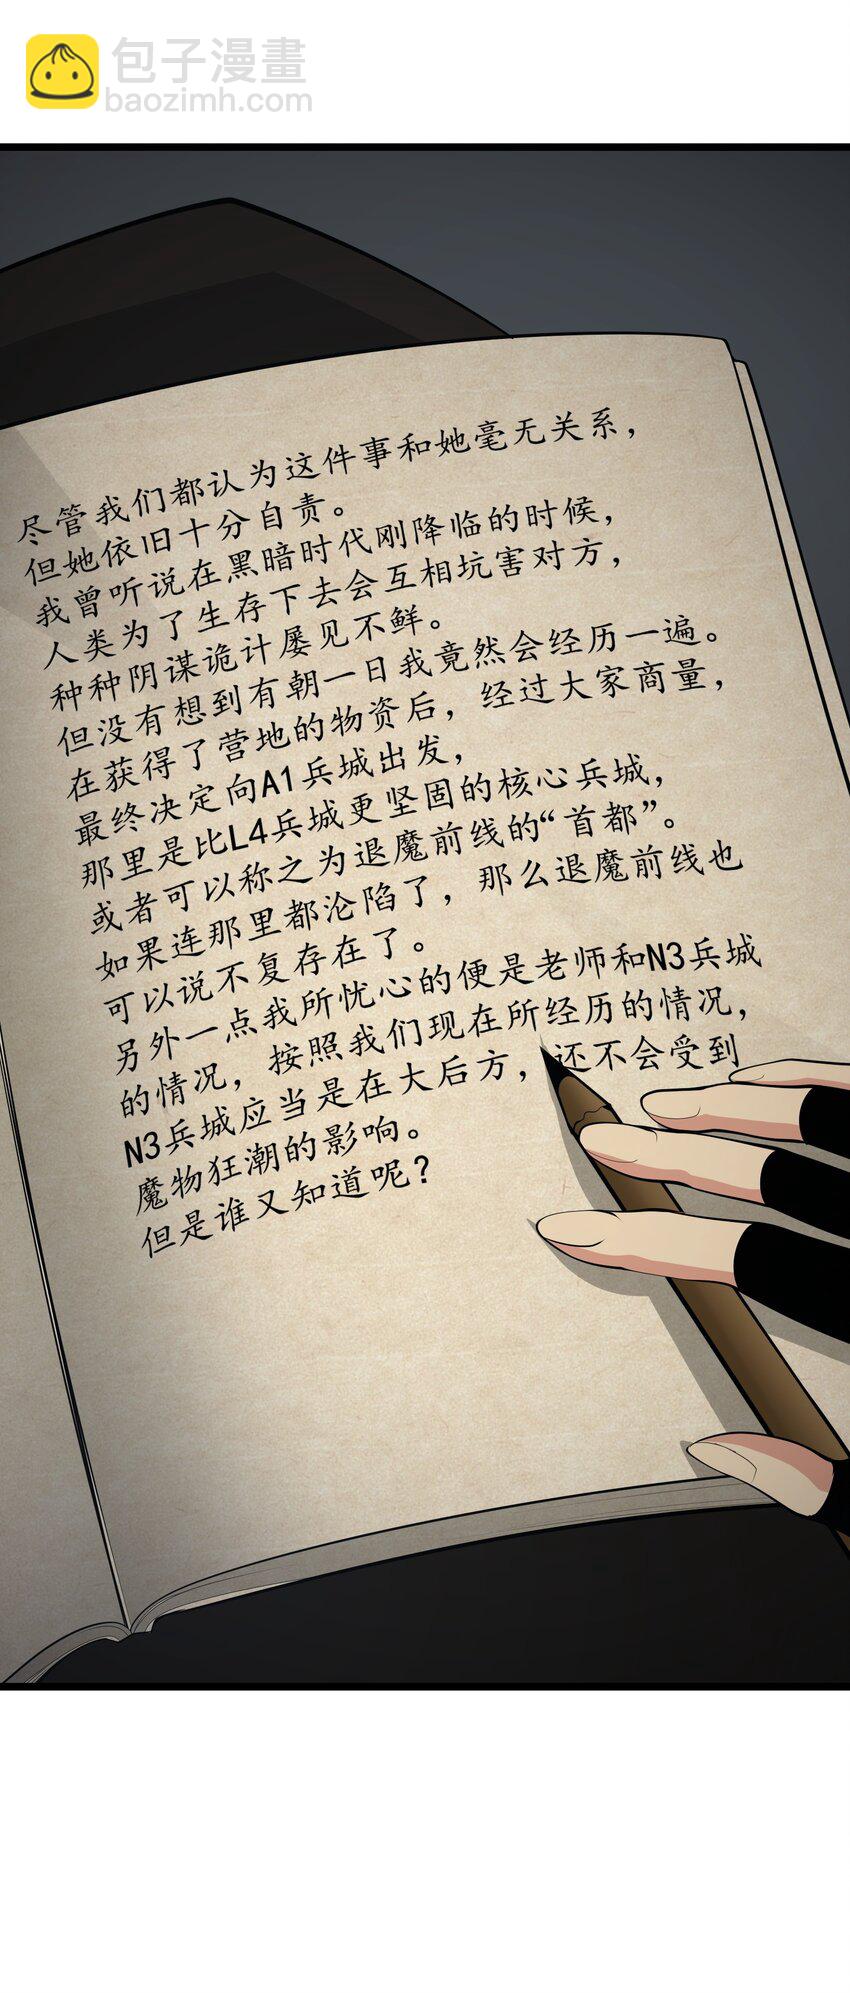 包子漫畫
baozimh.com
尽管我们都认为这件事和她毫无关系，
但她依旧十分自责。
我曾听说在黑暗时代刚降临的时候，
人类为了生存下去会互相坑害对方，
种种阴谋诡计屡见不鲜。
但没有想到有朝一日我竟然会经历一遍。
在获得了营地的物资后，经过大家商量，
最终决定向A1兵城出发，
那里是比L4兵城更坚固的核心兵城，
或者可以称之为退魔前线的“首都”。
如果连那里都沦陷了，那么退魔前线也
可以说不复存在了。
另外一点我所忧心的便是老师和N3兵城
的情况，按照我们现在所经历的情况，
N3兵城应当是在大后方，还不会受到
魔物狂潮的影响。
但是谁又知道呢？